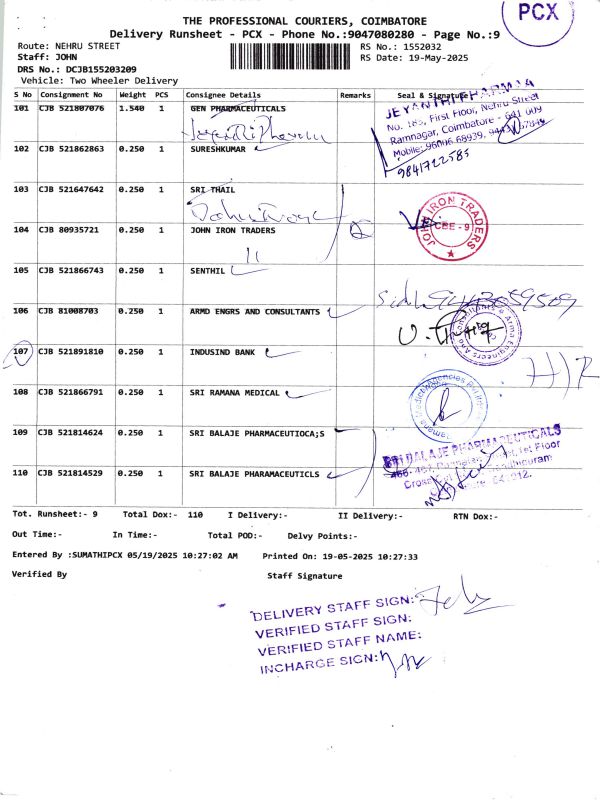 PCX
THE PROFESSIONAL COURIERS, COIMBATORE
Delivery Runsheet - PCX - Phone No.:9047080280 - Page No.:9
Route: NEHRU STREET
RS No.: 1552032
Staff: JOHN
RS Date: 19-May-2025
DRS No.: DCJB155203209
Vehicle: Two Wheeler Delivery
S No Consignment No Weight PCS Consignee Details Remarks Seal & Signature
101 CJB 521807076 1.540 1 GEN PHARMACEUTICALS
JEYANTHI PHARMAA
No. 185, First Floor, Nehru Street
Ramnagar, Coimbatore - 641 009
Mobile: 96006 68939,
9841722585
102 CJB 521862863 0.250 1 SURESHKUMAR
103 CJB 521647642 0.250 1 SRI THAIL
104 CJB 80935721 0.250 1 JOHN IRON TRADERS
JOHN IRON TRADERS
CBE - 9
105 CJB 521866743 0.250 1 SENTHIL
9443059509
106 CJB 81008703 0.250 1 ARMD ENGRS AND CONSULTANTS
107 CJB 521891810 0.250 1 INDUSIND BANK
108 CJB 521866791 0.250 1 SRI RAMANA MEDICAL
109 CJB 521814624 0.250 1 SRI BALAJE PHARMACEUTIOCA;S
SRI BALAJE PHARMACEUTICALS
110 CJB 521814529 0.250 1 SRI BALAJE PHARAMACEUTICLS
Tot. Runsheet:- 9 Total Dox:- 110 I Delivery:- II Delivery:- RTN Dox:-
Out Time:- In Time:- Total POD:- Delvy Points:-
Entered By :SUMATHIPCX 05/19/2025 10:27:02 AM Printed On: 19-05-2025 10:27:33
Verified By Staff Signature
DELIVERY STAFF SIGN:
VERIFIED STAFF SIGN:
VERIFIED STAFF NAME:
INCHARGE SIGN: